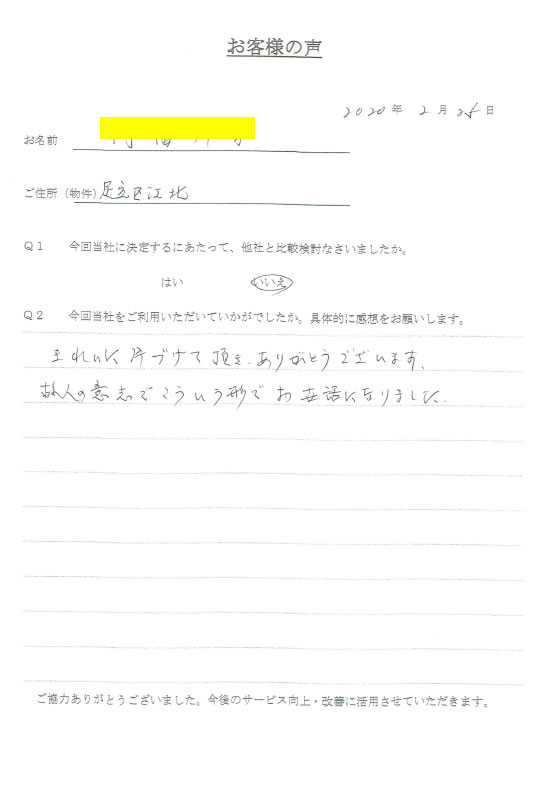 お客様の声
2020年 2月 28日
お名前
ご住所（物件）足立区江北
Q1 今回当社に決定するにあたって、他社と比較検討なさいましたか。
はい いいえ
Q2 今回当社をご利用いただいていかがでしたか。具体的に感想をお願いします。
きれいに片づけて頂き、ありがとうございます、
故人の意志でこういう形でお世話になりました。
ご協力ありがとうございました。今後のサービス向上・改善に活用させていただきます。